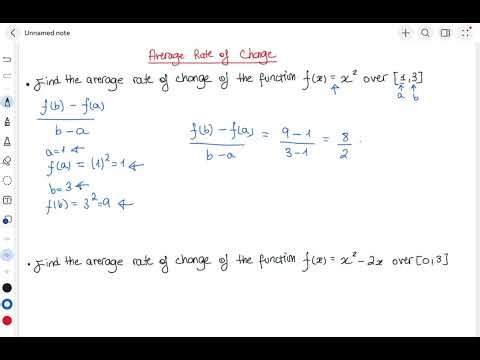 Unnamed note
Average Rate of Change
• Find the average rate of change of the function f(x) = x² over [1,3]
a b
f(b) - f(a)
b - a
a = 1
f(a) = (1)² = 1
b = 3
f(b) = 3² = 9
f(b) - f(a) / b - a = 9 - 1 / 3 - 1 = 8 / 2
• Find the average rate of change of the function f(x) = x² - 2x over [0,3]